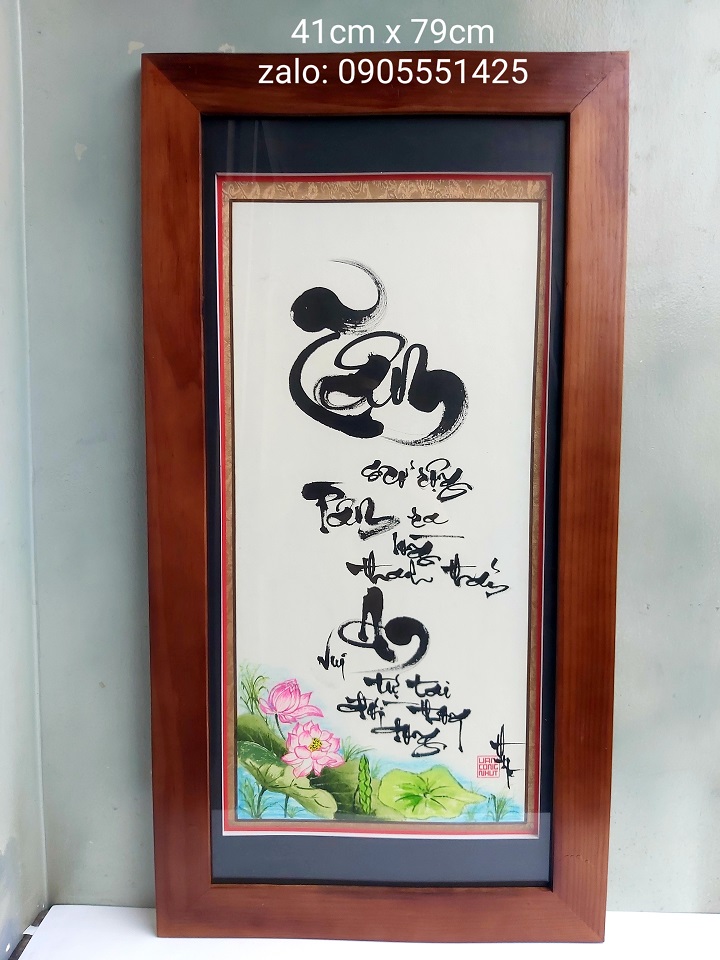 41cm x 79cm
zalo: 0905551425
Tâm
rộng
Tâm ra
lòng
thanh thản
An
vui
tự tại
thong
dong
CONG
NHUT